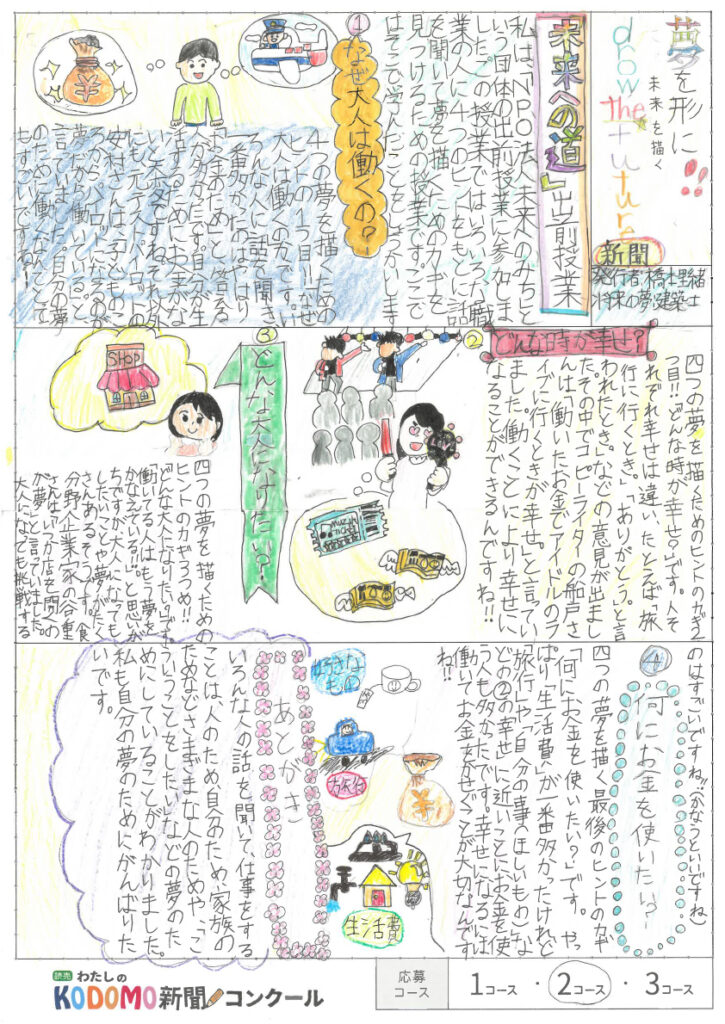 夢を形に!!
未来を描く
drow the future
新聞
発行者 橋
将来の夢 建築士
「未来への道」出前授業
私は、「NPO法人未来のみちと
いう団体の出前授業に参加しま
した。この授業では、いろいろな職
業の人に4つのヒントをもとに話
を聞いて夢を描くためのカギを
見つけるための授業です。ここで
はそこで学んだことをしょうかいします
①なぜ大人は働くの?
4つの夢を描くための
ヒントの1つ目!!「なぜ
大人は働くの力です。い
ろんな人に話を聞き
一番多かったのはやはり
「お金のため」と答える
人が多かったです。自分が生
活するためにお金がな
いと
夢だから働いている」と
言っていました。自分の夢
のため働くなんてとて
もすごいですね!!
②どんな時が幸せ?
四つの夢を描くためのヒントのカギ2
つ目!!どんな時が幸せ?です。人そ
れぞれ幸せは違い、たとえば「旅
行に行くとき。」「ありがとう。」と言
われたとき。」などの意見が出まし
た。その中でコピーライターの船戸さ
んは、「働いたお金でアイドルのラ
イブに行くときが幸せ。」と言ってい
ました。働くことにより幸せに
なることができるんですね!!
③どんな大人になりたい?
SHOP
四つの夢を描くための
ヒントのカギ3つめ!!
どんな大人になりたい?です
働いてる人はもう夢を
かなえている!!と思いが
ちですが大人になっても
したいことや夢がたく
さんあるそうです。食
分野の企業家の谷重
さんは「いつか店を開くの
が夢」と言っていました。
大人になっても挑戦する
のはすごいですね!!(かなうといいですね)
④何にお金を使いたい?
四つの夢を描く最後のヒントのカギ
「何にお金を使いたい?」です。やっ
ぱり「生活費」が一番多かったけれど
「旅行」や「自分の事(ほしいもの)」な
どの②の幸せに近いことにお金を使
う人も多かったです。幸せになるには
働いてお金をかせぐことが大切なんです
ね!!
好きなもの
旅行
生活費
あとがき
いろんな人の話を聞いて、仕事をする
ことは、人のため、自分のため、家族の
ためなどさまざまな人のためや、「こ
ういうことをしたい」などの夢のた
めにしていることがわかりました。
私も自分の夢のためにがんばりた
いです。
読売 わたしの
KODOMO新聞コンクール
応募コース
1コース・2コース・3コース